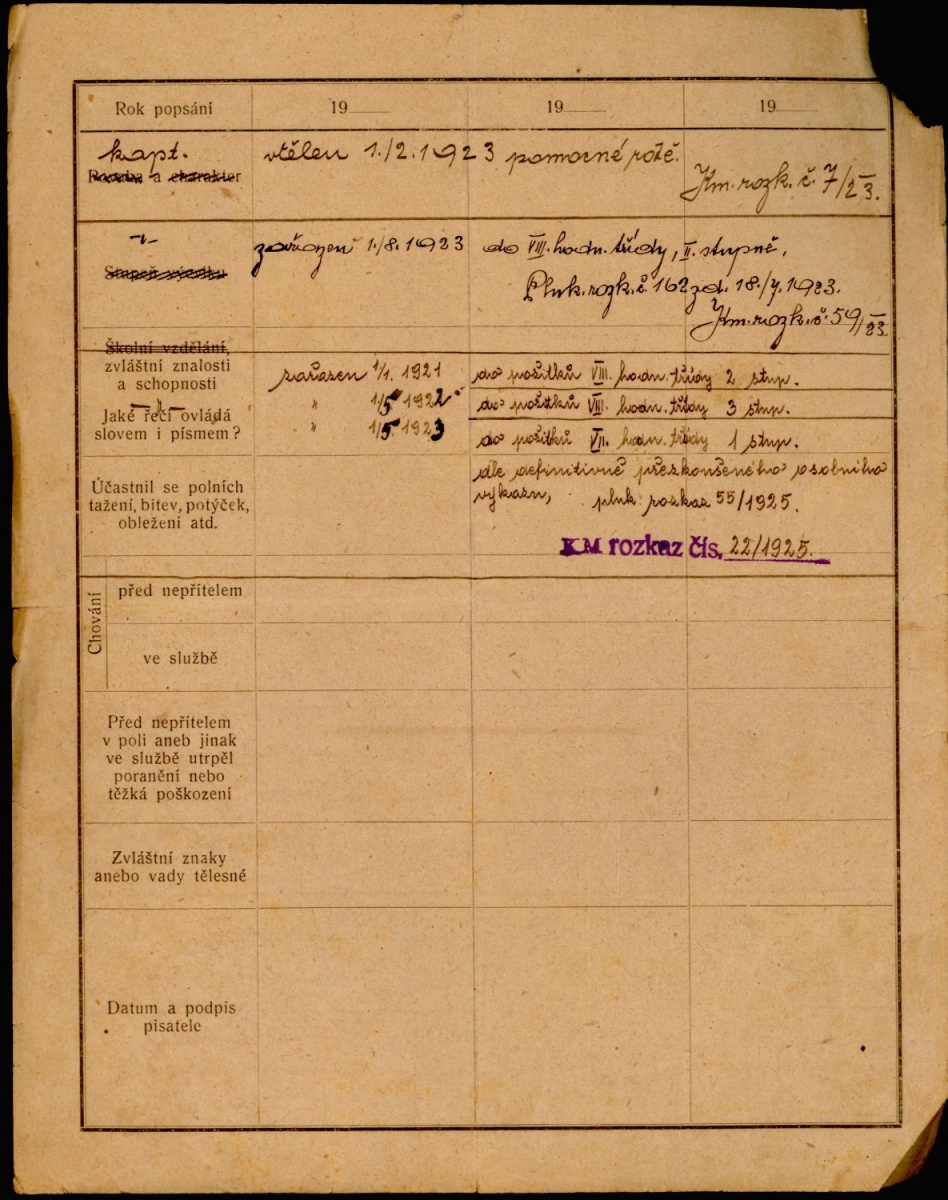 Rok popsání 19 19 19
kapt. vtělen 1./2.1923 pomocné rotě.
Povaha a charakter
Km. rozk. č. 7/23.
-"- zařazen 1./8.1923 do VIII. hodn. třídy, II. stupně,
Stupeň výcviku
Plnk. rozk. č. 162 zd. 18./7.1923.
Km. rozk. č. 59/23.
Školní vzdělání,
zvláštní znalosti
a schopnosti
zařazen 1/1. 1921 do požitků VIII. hodn. třídy 2 stup.
" 1/5 1922 do požitků VIII. hodn. třídy 3 stup.
Jaké řeči ovládá
slovem i písmem?
" 1/5. 1923 do požitků VII. hodn. třídy 1 stup.
dle definitivně přezkoušeného osobního
výkazu, plnk. rozkaz 55/1925.
Účastnil se polních
tažení, bitev, potyček,
obležení atd.
KM rozkaz čís. 22/1925.
Chování
před nepřítelem
ve službě
Před nepřítelem
v poli aneb jinak
ve službě utrpěl
poranění nebo
těžká poškození
Zvláštní znaky
anebo vady tělesné
Datum a podpis
pisatele